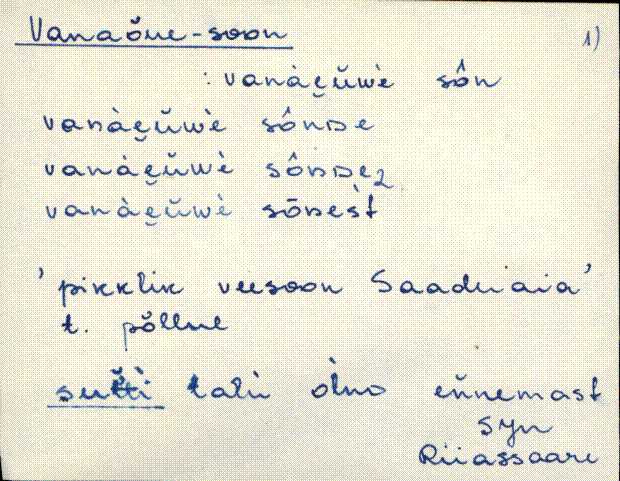 Vanaõue-soon
1)
: vanàe̮ŭwè sôn
vanàe̮ŭwè sônᴅe
vanàe̮ŭwè sônᴅe2
vanàe̮ŭwè sōnest̀
'pikklik veesoon Saaduiaia'
t. põllul
talù olno eňnemast
syn
Riiassaare